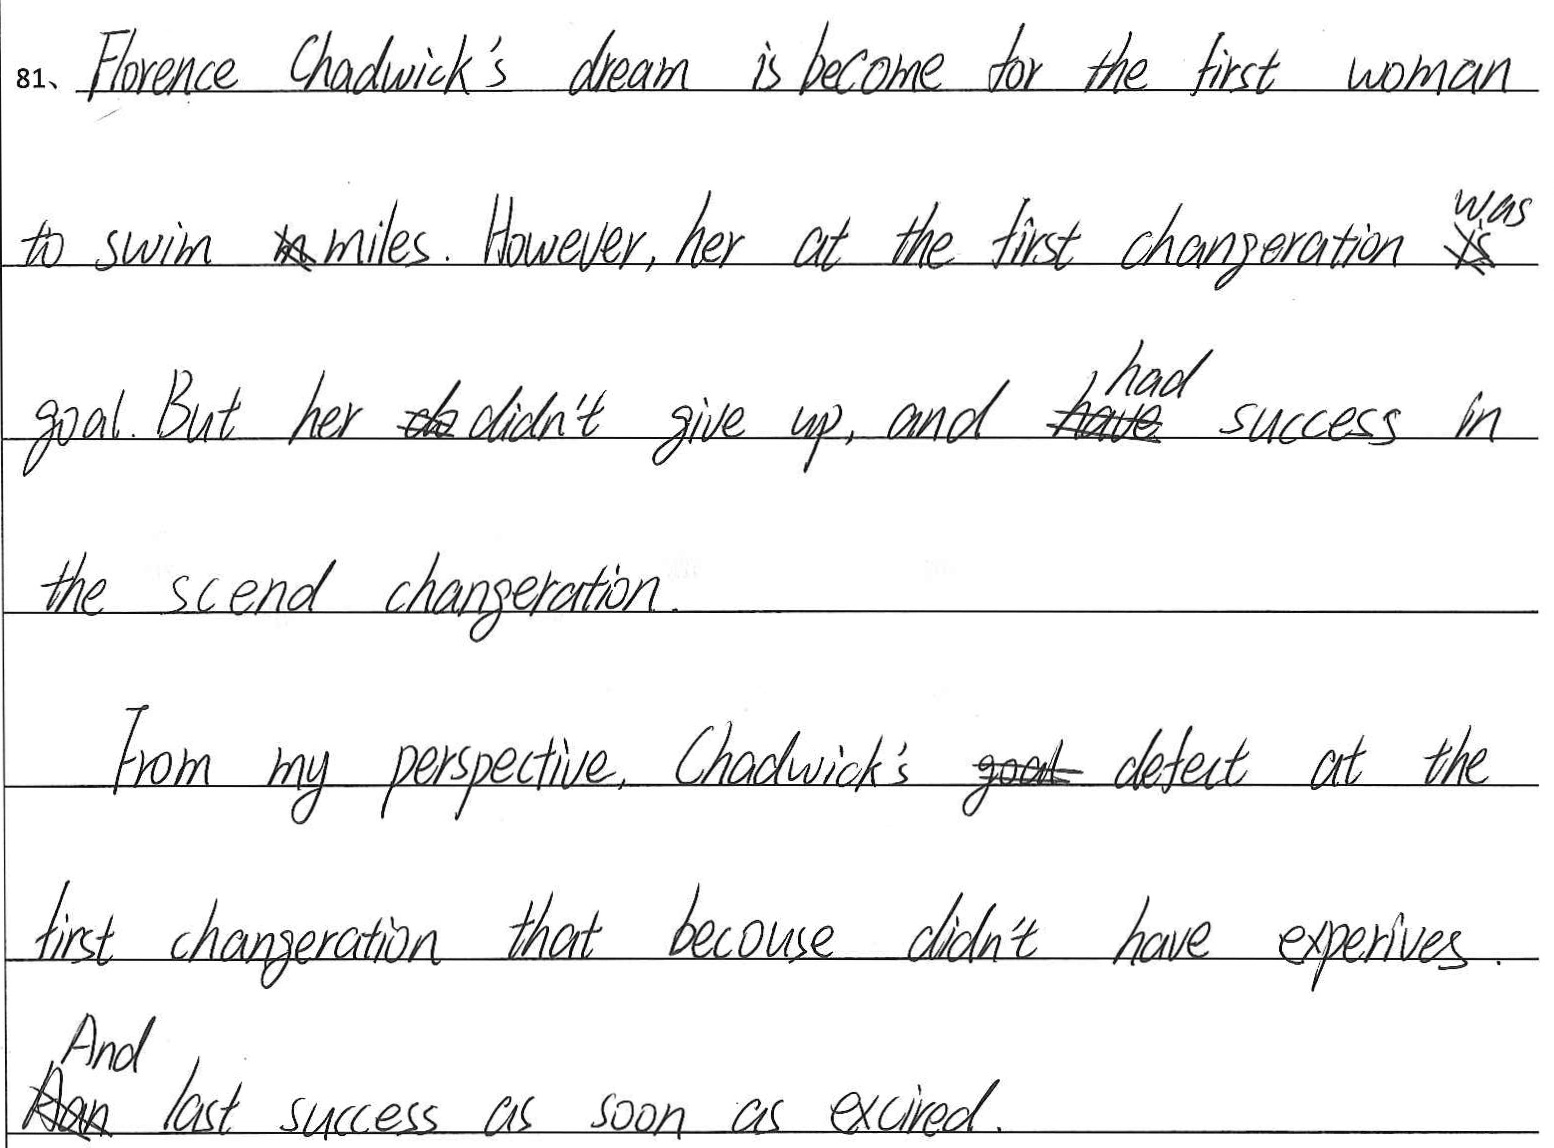 81、Florence Chadwick's dream is become for the first woman
to swim miles. However, her at the first changeration was
goal. But her didn't give up, and had success in
the scend changeration.
From my perspective, Chadwick's defect at the
first changeration that becouse didn't have experives.
And last success as soon as excired.